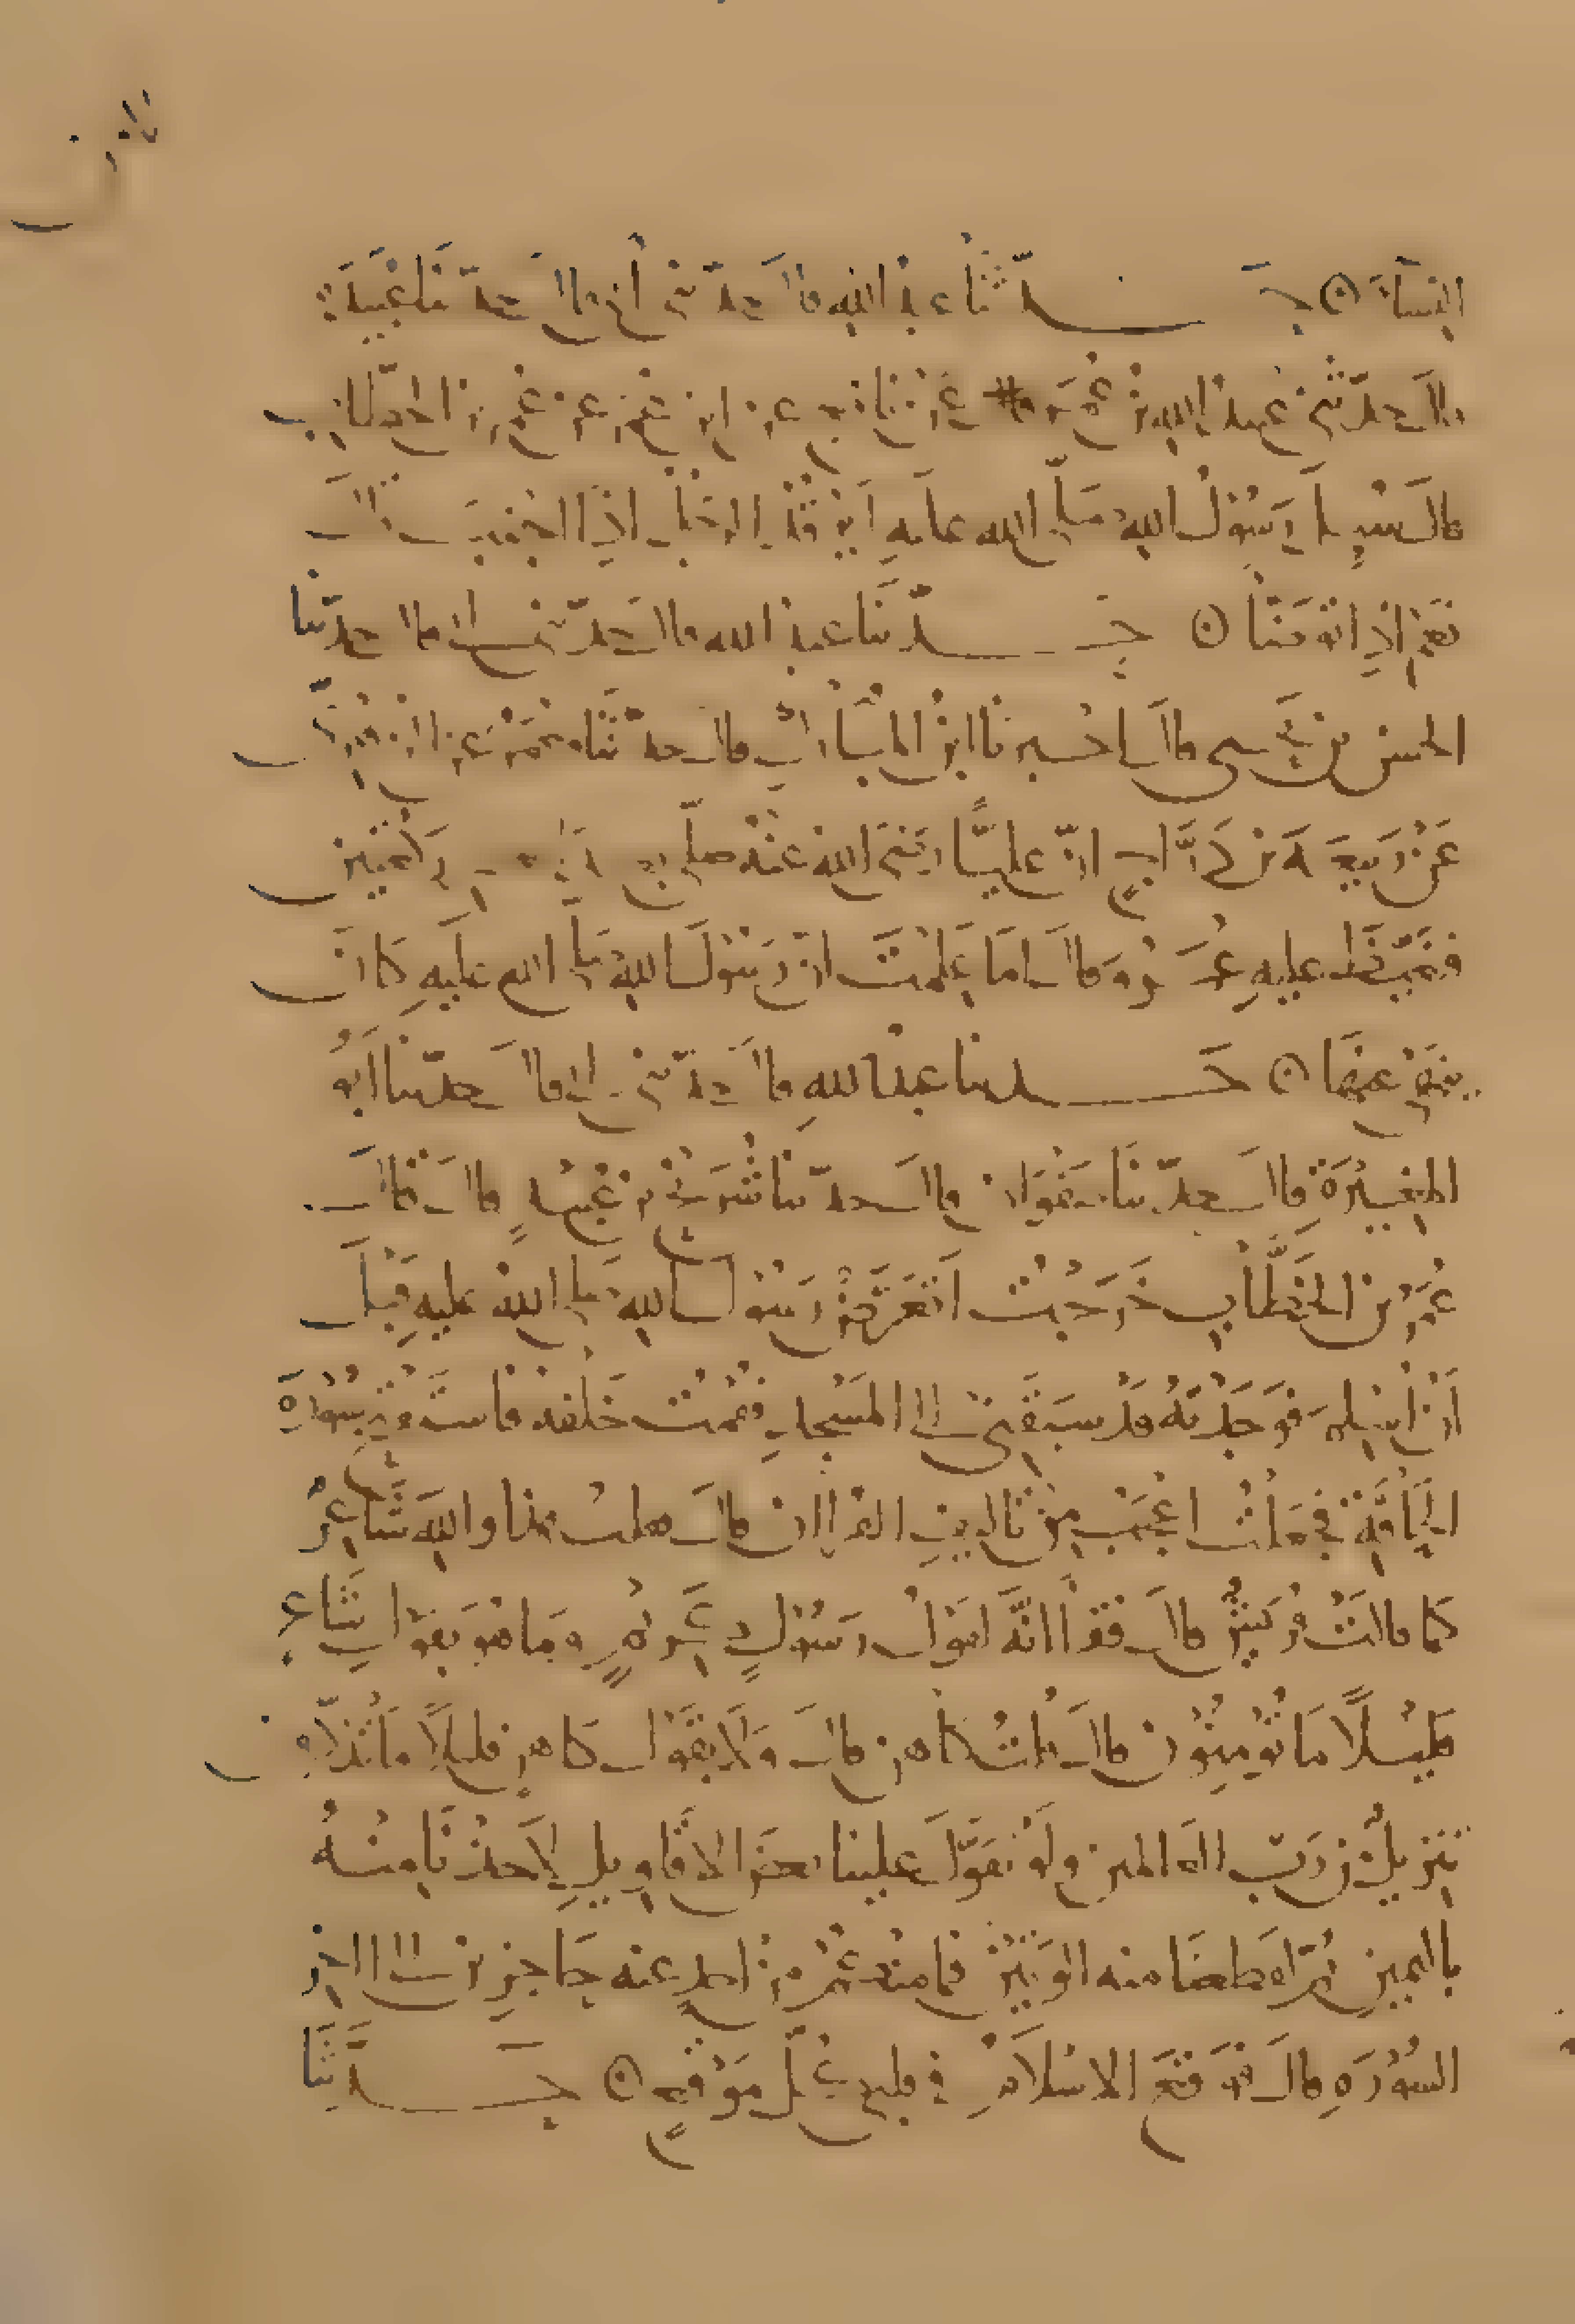 النساء ۞ حدثنا عبد الله قال حدثني أبي قال حدثنا عبيدة
قال حدثني عبيد الله بن عمر عن نافع عن ابن عمر عن عمر بن الخطاب
قال سئل رسول الله صلى الله عليه أيرقد الرجل اذا اجنب قال
نعم اذا توضأ ۞ حدثنا عبد الله قال حدثني ابي قال حدثنا
الحسن بن يحيى قال اخبرنا ابن المبارك قال حدثنا معمر عن الزهري
عن ربيعة بن دراج ان عليا رضي الله عنه صلى ركعتين
فتغيظ عليه عمر وقال اما علمت ان رسول الله صلى الله عليه كان
ينهى عنها ۞ حدثنا عبد الله قال حدثني ابي قال حدثنا أبو
المغيرة قال حدثنا صفوان قال حدثنا شريح بن عبيد قال قال
عمر بن الخطاب خرجت أتعرض رسول الله صلى الله عليه قبل
أن أسلم فوجدته قد سبقني الى المسجد فقمت خلفه فاستفتح سورة
الحاقة فجعلت اعجب من تاليف القران قال فقلت هذا والله شاعر
كما قالت قريش قال فقرأ انه لقول رسول كريم وما هو بقول شاعر
قليلا ما تؤمنون قال قلت كاهن قال ولا بقول كاهن قليلا ما تذكرون
تنزيل من رب العالمين ولو تقول علينا بعض الاقاويل لاخذنا منه
باليمين ثم لقطعنا منه الوتين فما منكم من احد عنه حاجزين الى اخر
السورة قال فوقع الاسلام في قلبي كل موقع ۞ حدثنا